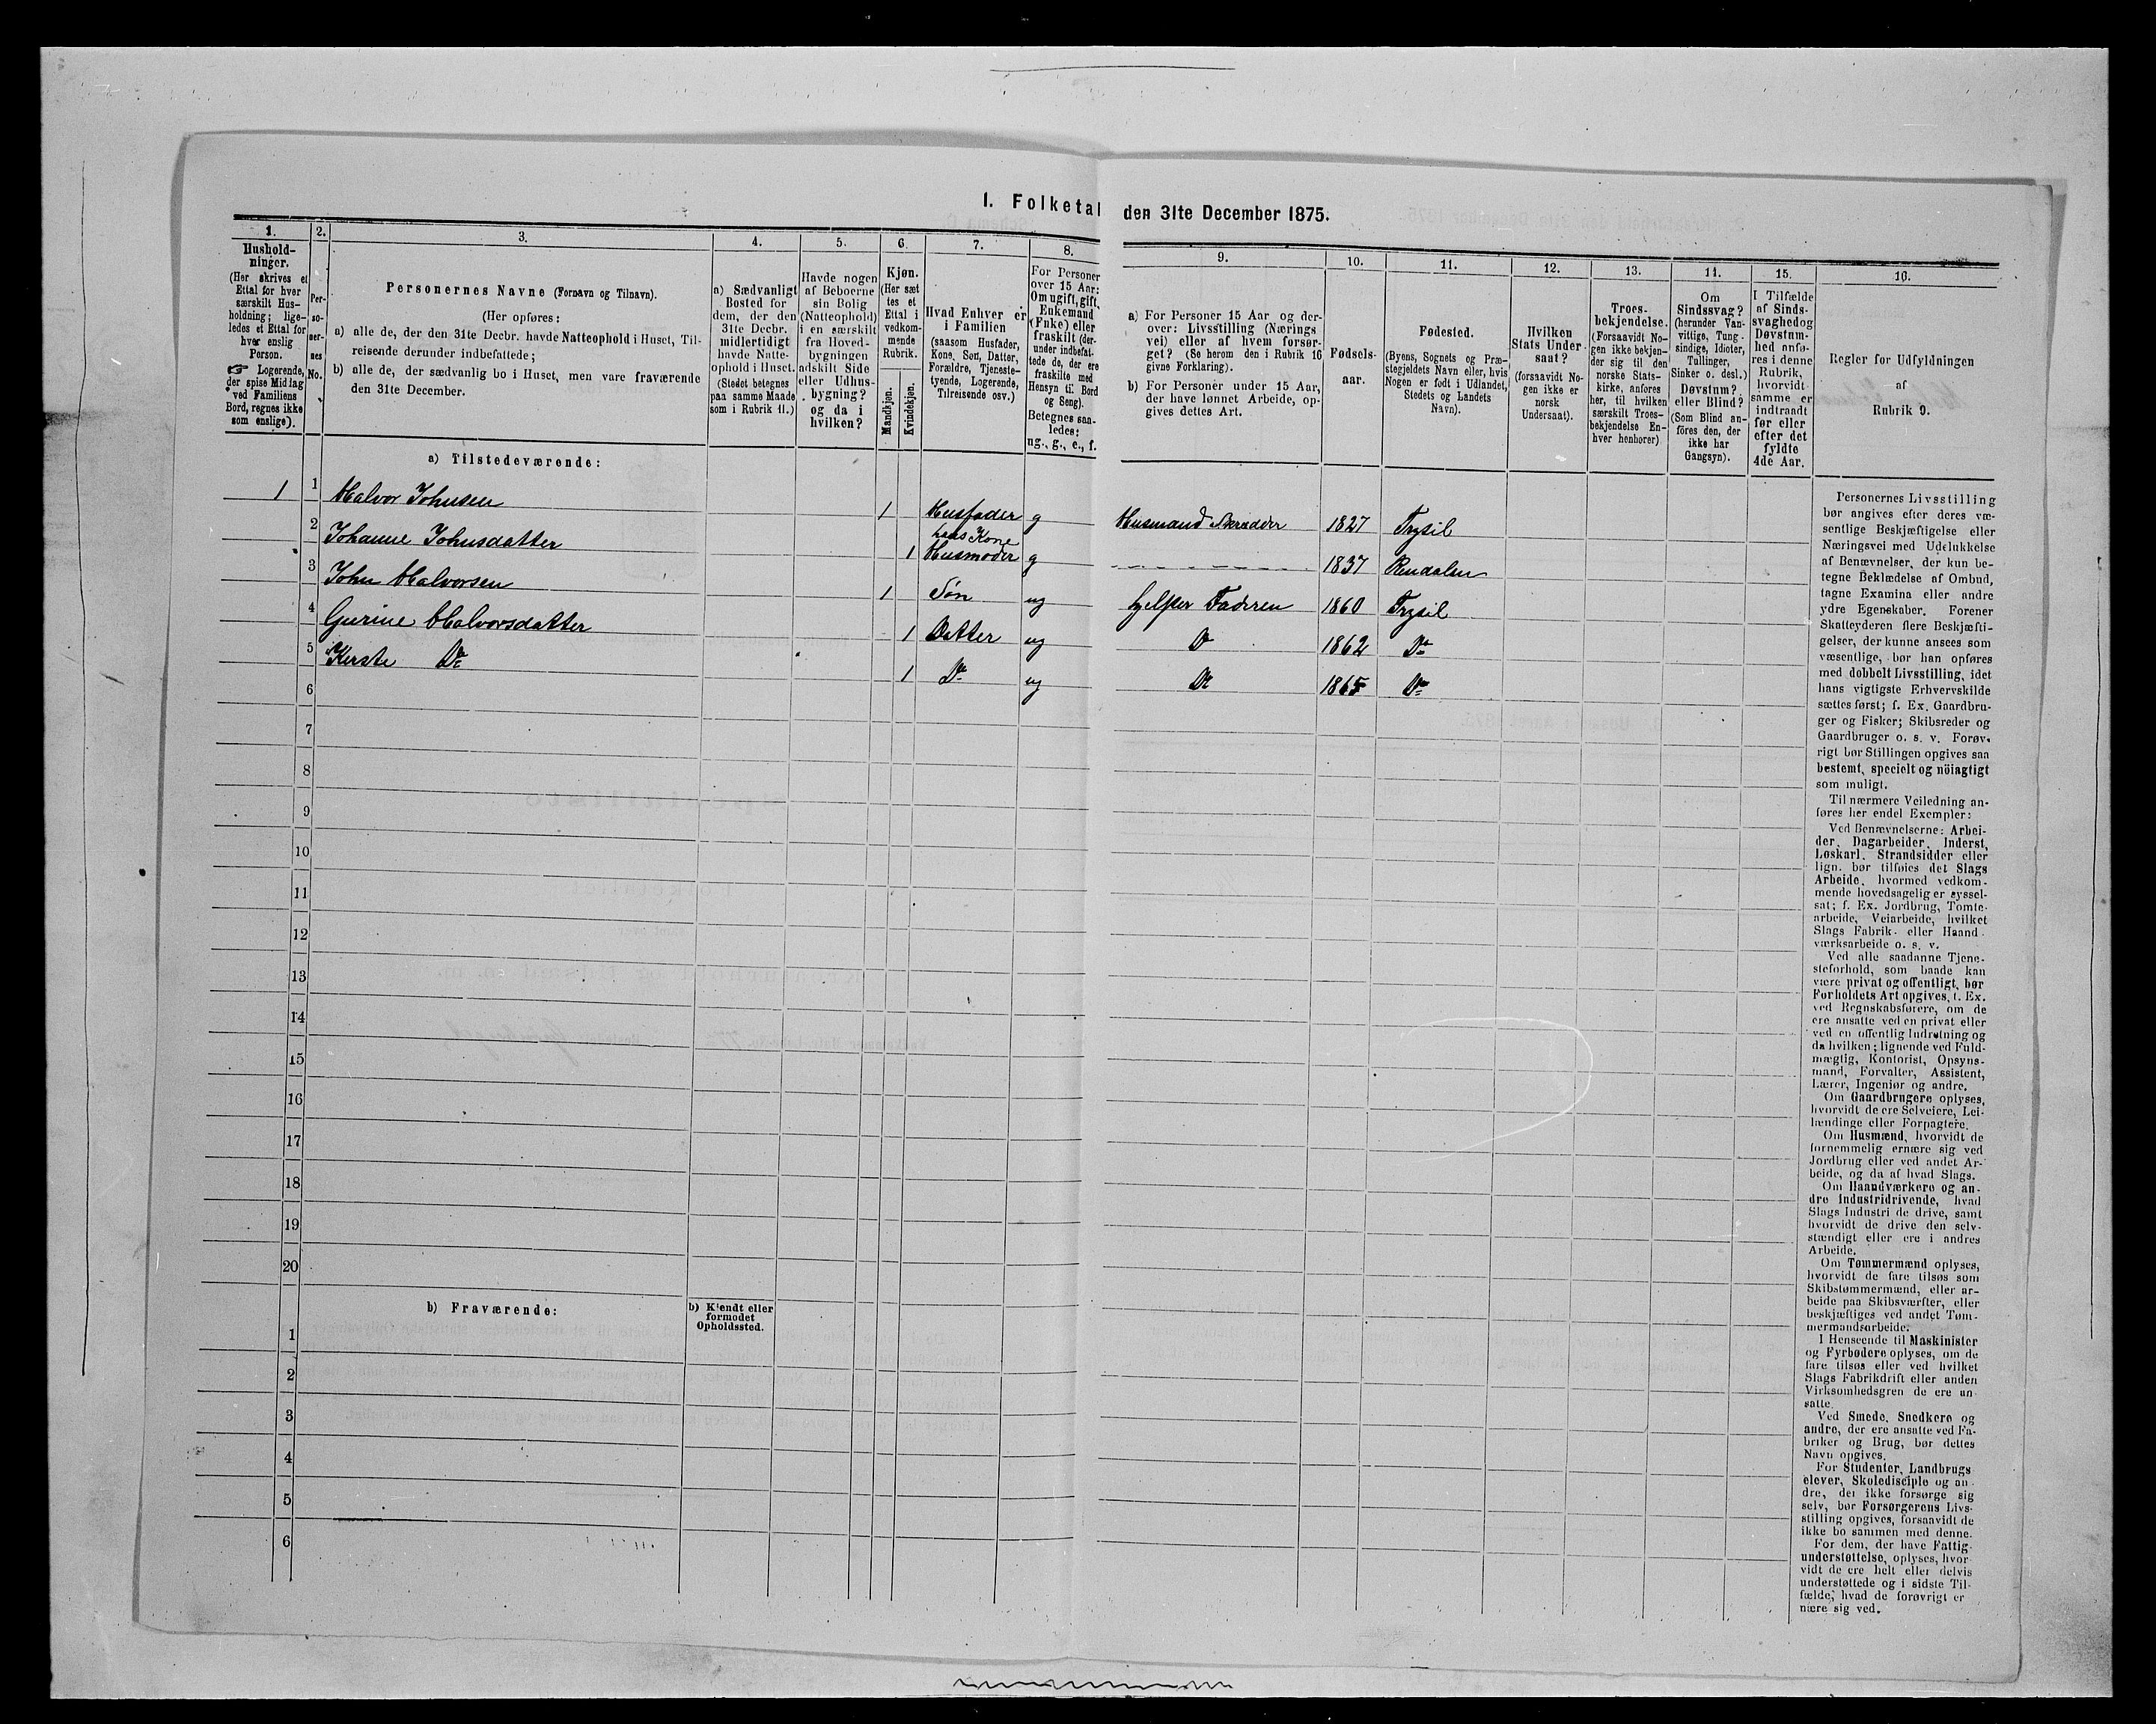 I. Folketal den 31te December 1875.
1.
Hushold-
ninger.
(Her skrives et
Ettal for hver
særskilt Hus-
holdning; lige-
ledes et Ettal for
hver enslig
Person.
☞ Logerende,
der spise Middag
ved Familiens
Bord, regnes ikke
som enslige).
2.
Per-
so-
ner-
nes
No.
3.
Personernes Navne (Fornavn og Tilnavn).
(Her opføres:
a) alle de, der den 31te Decbr. havde Natteophold i Huset, Til-
reisende derunder indbefattede;
b) alle de, der sædvanlig bo i Huset, men vare fraværende
den 31te December.
4.
a) Sædvanligt
Bosted for
dem, der den
31te Decbr.
midlertidigt
havde Natte-
ophold i Huset.
(Stedet betegnes
paa samme Maade
som i Rubrik 11.)
5.
Havde nogen
af Beboerne
sin Bolig
(Natteophold)
i en særskilt
fra Hoved-
bygningen
adskilt Side
eller Udhus-
bygning?
og da i
hvilken?
6.
Kjøn.
(Her sæt
tes et
Ettal i
vedkom-
mende
Rubrik.
Mandkjøn.
Kvindekjøn.
7.
Hvad Enhver er
i Familien
(saasom Husfader,
Kone, Søn, Datter,
Forældre, Tjeneste-
tyende, Logerende,
Tilreisende osv.)
8.
For Personer
over 15 Aar:
Om ugift, gift,
Enkemand
(Enke) eller
fraskilt (der-
under indbefat-
tede de, der ere
fraskilte med
Hensyn til Bord
og Seng).
Betegnes saa-
ledes:
ug., g., e., f.
9.
a) For Personer 15 Aar og der-
over: Livsstilling (Nærings
vei) eller af hvem forsør-
get? (Se herom den i Rubrik 16
givne Forklaring).
b) For Personer under 15 Aar,
der have lønnet Arbeide, op-
gives dettes Art.
10.
Fødsels-
aar.
11.
Fødested.
(Byens, Sognets og Præ-
stegjeldets Navn eller, hvis
Nogen er født i Udlandet,
Stedets og Landets
Navn).
12.
Hvilken
Stats Under
saat?
(forsaavidt No-
gen ikke er
norsk
Undersaat).
13.
Troes-
bekjendelse.
(Forsaavidt No-
gen ikke bekjen-
der sig til den
norske Stats-
kirke, anføres
her, til hvilken
særskilt Troes-
bekjendelse En-
hver henhører)
14.
Om
Sindssvag?
(herunder Van-
vittige, Tung-
sindige, Idioter,
Tullinger,
Sinker o. desl.)
Døvstum?
eller Blind?
(Som Blind an-
føres den, der
ikke har
Gangsyn).
15.
I Tilfælde
af Sinds-
svaghed og
Døvstum-
hed anfø-
res i denne
Rubrik,
hvorvidt
samme er
indtraadt
før eller
efter det
fyldte
4de Aar.
16.
Regler for Udfyldningen
af
Rubrik 9.
a) Tilstedeværende:
1 1 Halvor Johnsen 1 Husfader g Husmand Skrædder 1827 Trysil
hans Kone
2 Johanne Johnsdatter 1 Husmoder g 1837 Rendalen
3 John Halvorsen 1 Søn ug hjelper Faderen 1860 Trysil
4 Gurine Halvorsdatter 1 Datter ug Do 1862 Do
5 Kerste Do 1 Do ug Do 1865 Do
6
7
8
9
10
11
12
13
14
15
16
17
18
19
20
b) Fraværende:
b) Kjendt eller
formodet
Opholdssted.
1
2
3
4
5
6
Personernes Livsstilling
bør angives efter deres væ-
sentlige Beskjæftigelse eller
Næringsvei med Udelukkelse
af Benævnelser, der kun be-
tegne Beklædelse af Ombud,
tagne Examina eller andre
ydre Egenskaber. Forener
Skatteyderen flere Beskjæfti-
gelser, der kunne ansees som
væsentlige, bør han opføres
med dobbelt Livsstilling, idet
hans vigtigste Erhvervskilde
sættes først; f. Ex. Gaardbru-
ger og Fisker; Skibsreder og
Gaardbruger o. s. v. Forøv-
rigt bør Stillingen opgives saa
bestemt, specielt og nöiagtigt
som muligt.
Til nærmere Veiledning an-
føres her endel Exempler:
Ved Benævnelserne: Arbei-
der, Dagarbeider, Inderst,
Løskarl, Strandsidder eller
lign. bør tilføies det Slags
Arbeide, hvormed vedkom-
mende hovedsagelig er syssel-
sat; f. Ex. Jordbrug, Tomte-
arbeide, Veiarbeide, hvilket
Slags Fabrik- eller Haand-
værksarbeide o. s. v.
Ved alle saadanne Tjene-
steforhold, som baade kan
være privat og offentligt, bør
Forholdets Art opgives, f. Ex.
ved Regnskabsførere, om de
ere ansatte ved en privat eller
ved en offentlig Indretning og
da hvilken; lignende ved Fuld-
mægtig, Kontorist, Opsyns-
mand, Forvalter, Assistent,
Lærer, Ingeniør og andre.
Om Gaardbrugere oplyses,
hvorvidt de ere Selveiere, Lei-
lændinge eller Forpagtere.
Om Husmænd, hvorvidt de
fornemmelig ernære sig ved
Jordbrug eller ved andet Ar-
beide, og da af hvad Slags.
Om Haandværkere og an-
dre Industridrivende, hvad
Slags Industri de drive, samt
hvorvidt de drive den selv-
stændigt eller ere i andres
Arbeide.
Om Tømmermænd oplyses,
hvorvidt de fare tilsøs som
Skibstømmermænd, eller ar-
beide paa Skibsværfter, eller
beskjæftiges ved andet Tøm-
mermandsarbeide.
I Henseende til Maskinister
og Fyrbødere oplyses, om de
fare tilsøs eller ved hvilket
Slags Fabrikdrift eller anden
Virksomhedsgren de ere an-
satte.
Ved Smede, Snedkere og
andre, der ere ansatte ved Fa-
briker og Brug, bør dettes
Navn opgives.
For Studenter, Landbrugs
elever, Skoledisciple og an-
dre, der ikke forsørge sig
selv, bør Forsørgerens Livs-
stilling opgives, forsaavidt de
ikke bo sammen med denne.
For dem, der have Fattig-
understøttelse, oplyses, hvor-
vidt de ere helt eller delvis
understøttede og i sidste Til-
fælde, hvad de forøvrigt er
nære sig ved.